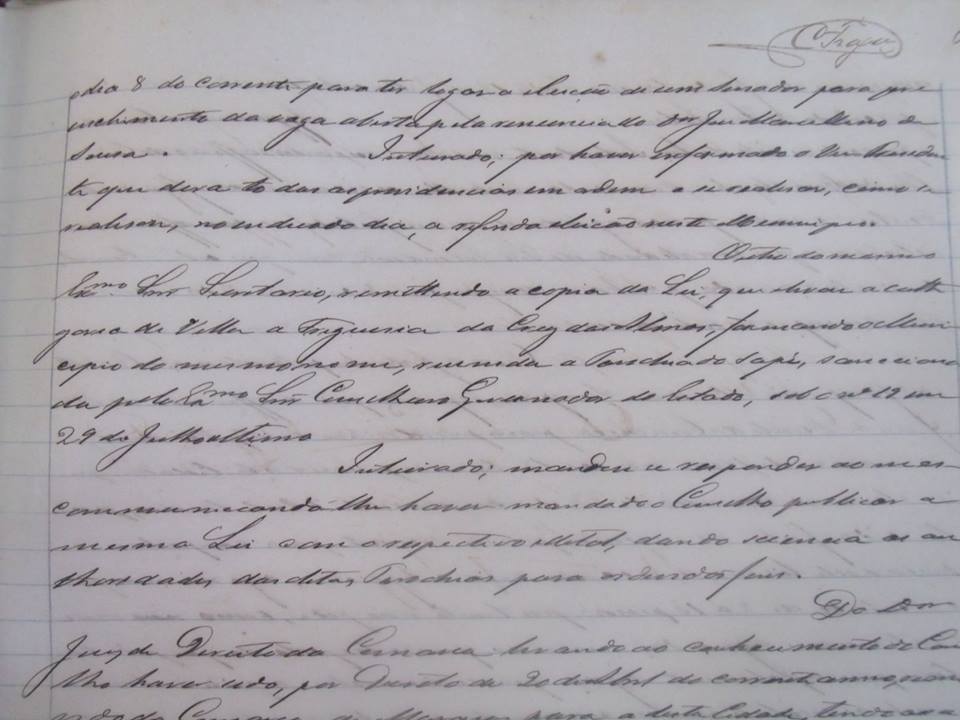 dia 8 do corrente para ter logar a eleição de um Senador para pre
enchimento da vaga aberta pela renuncia do Dr José Marcellino de
Sousa. Inteirado; por haver informado o Snr Presiden
te que dera todas as providencias em ordem a se realisar, como se
realisou, no indicado dia, a referida eleição neste Municipio.
Officio do mesmo
Exmo. Snr Secretario, remettendo a copia da Lei, que elevou a cathe
goria de Villa a Freguesia da Cruz das Almas, formando o Muni
cipio do mesmo nome, reunida a Parochia do Sapé, sancciona
da pelo Exmo Snr Conselheiro Governador do Estado, sob o nº 12 em
29 de Julho ultimo
Inteirado; mandou se responder ao mes
communicando lhe haver mandado o Conselho publicar a
mesma Lei com o respectivo edital, dando sciencia as au
thoridades das ditas Parochias para os devidos fins.
Do Dor
Juiz de Direito da Comarca levando ao conhecimento do Con
lho haver sido, por Decreto de 20 de Abril do corrente anno,
da Comarca de para a desta Cidade, tendo